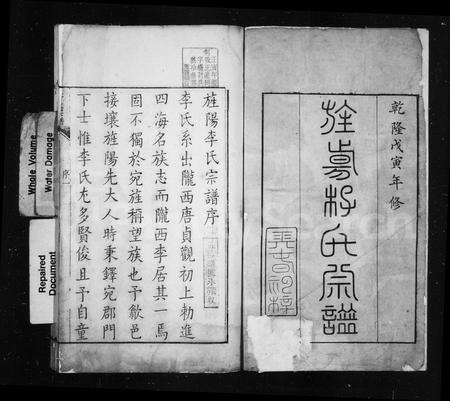 乾隆戊寅年修
旌陽李氏宗譜
旌陽李氏宗譜序
李氏系出隴西唐貞觀初上勅進
四海名族志而隴西李居其一焉
固不獨於宛旌稱望族也予歙邑
接壤旌陽先大人時秉鐸宛郡門
下士惟李氏尤多賢俊且予自童
序一
Whole Volume
Water Damage
Repaired
Document